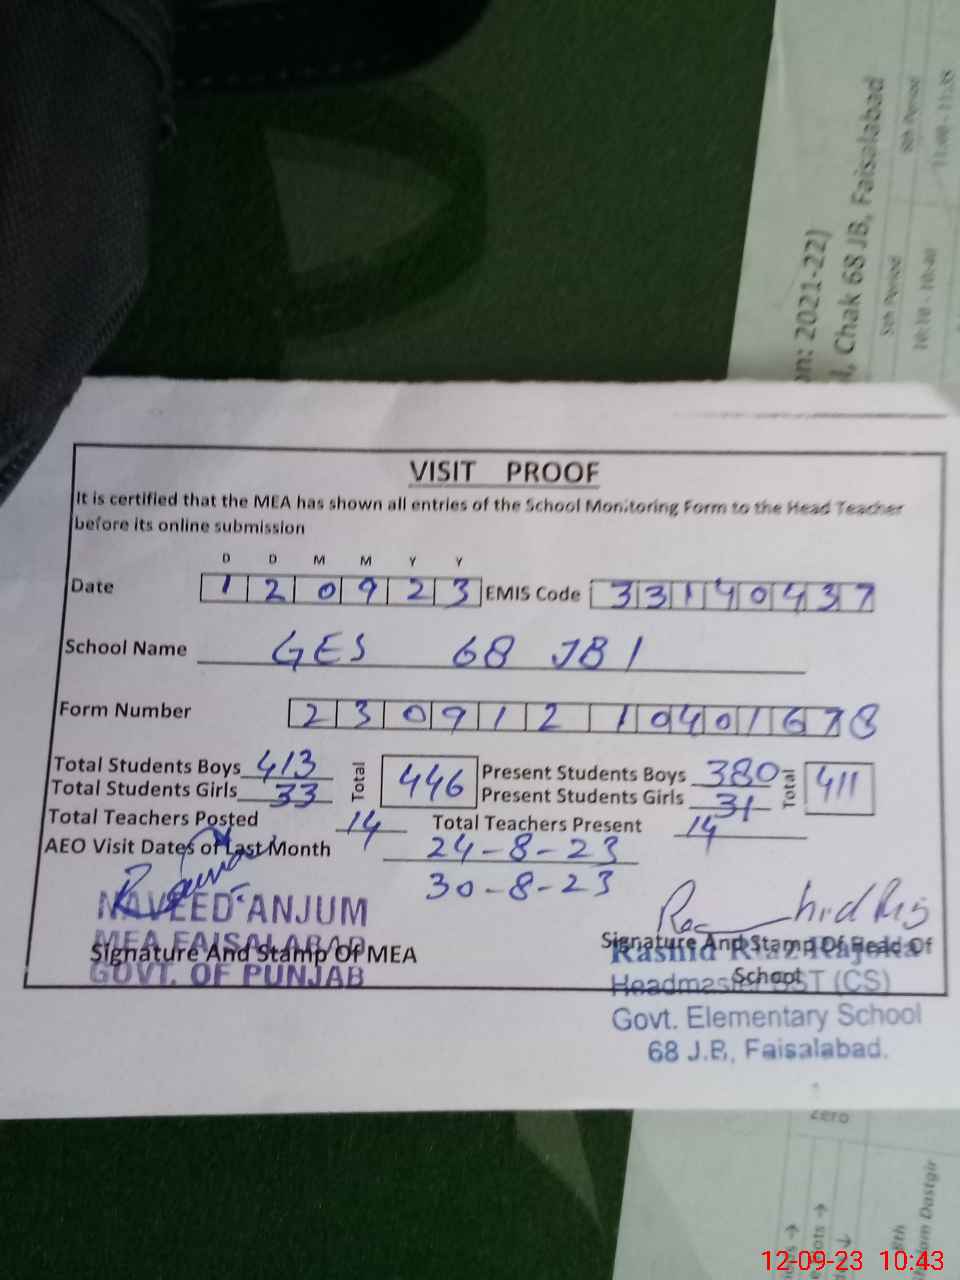 on: 2021-22)
Chak 68 JB, Faisalabad
5th Period
6th Period
10:10 - 10:40
11:00 - 11:35
VISIT PROOF
It is certified that the MEA has shown all entries of the School Monitoring Form to the Head Teacher
before its online submission
D D M M Y Y
Date 1 2 0 9 2 3 EMIS Code 3 3 1 4 0 4 3 7
School Name GES 68 JB 1
Form Number 2 3 0 9 1 2 1 0 4 0 1 6 7 8
Total Students Boys 413 Total 446 Present Students Boys 380 Total 411
Total Students Girls 33 Present Students Girls 31
Total Teachers Posted 14 Total Teachers Present 14
AEO Visit Dates of Last Month 24-8-23
30-8-23
NAVEED ANJUM
MEA FAISALABAD
Signature And Stamp Of MEA
GOVT. OF PUNJAB
Signature And Stamp Of Head Of
School
Rashid Riaz
Headmaster EST (CS)
Govt. Elementary School
68 J.B, Faisalabad.
zero
Dastgir
12-09-23 10:43